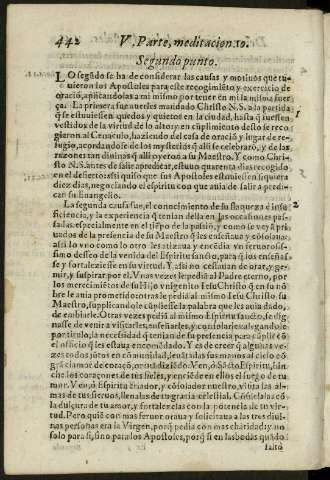 442 V. Parte, meditacion. 10.
Segundo punto.
LO segũdo se ha de considerar las causas y motiuos que tu-
uieron los Apostoles para este recogimiẽto y exercicio de
oració, aplicandolas a mi mismo por tener en mi la misma fuer-
ça. La primera fue auerles mandado Christo N. S. a la partida
q̃ se estuuiessen quedos y quietos en la ciudad, hasta q̃ fuessen
vestidos de la virtud de lo alto; y en cũplimiento desto se reco
gieron al Cenaculo, haziendo del casa de oració y lugar de re-
fugio, acordandose de los mysterios q̃ alli se celebraró, y de las
razones tan diuinas q̃ alli oyeron a su Maestro. Y como Chri-
sto N. S. antes de salir a predicar, estuuo quarenta dias recogido
en el desierto: assi quiso que sus Apostoles estuuiessen siquiera
diez dias, negociando el espiritu con que auia de salir a predi-
car su Euangelio.
La segunda causa fue, el conocimiento de su flaqueza é insu-
ficiencia, y la experiencia q̃ tenian della en las occasiones pas-
sadas, especialmente en el tiẽpo de la passió, y como se vẽ á pri
uados de la presencia de su Maestro q̃ los enseñaua y cósolaua:
assi lo vno como lo otro les atizaua y encẽdia vn feruorosis-
simo desseo de la venida del Espiritu sancto, para q̃ los enseñas-
se y fortaleziesse en su virtud. Y assi no cessauan de orar, y ge-
mir, y suspirar por el. Vnas vezes le pediã al Padre eterno, por
los merecimiẽtos de su Hijo vnigenito Iesu Christo q̃ en su nó
bre le auia prometido: otras le pediã al mismo Iesu Christo, su
Maestro, suplicandole cũpliesse la palabra que les auia dado,
de embiarle. Otras vezes pediã al mismo Espiritu sancto, se dig
nasse de venir a visitarles, enseñarles, y consolarles: alegandole
por titulo, la necessidad q̃ tenian de su presencia para cũplir có
el officio q̃ les estaua encomendado. Y es de creer q̃ algunas ve-
zes todos jũtos en comunidad, leuãtadas sus manos al cielo có
grã clamor de coraçó, orauã diziẽdo. Ven, ó Sãcto Espiritu, hin-
che los coraçones de tus fieles, y encẽde en ellos el fuego de tu
amor. Ven, ó Espiritu criador, y cósolador nuestro, visita las al-
mas de tus sieruos, llenalas de tu gracia celestial. Cósuelalas có
la dulçura de tu amor, y fortalezelas con la potencia de tu vir-
tud. Pero quiẽ con mas feruor oraua y solicitaua a las tres diui
nas personas era la Virgen, porq̃ pedia con mas charidad: y no
solo para si, sino para los Apostoles, porq̃ si en las bodas quãdo
faltó
1
2